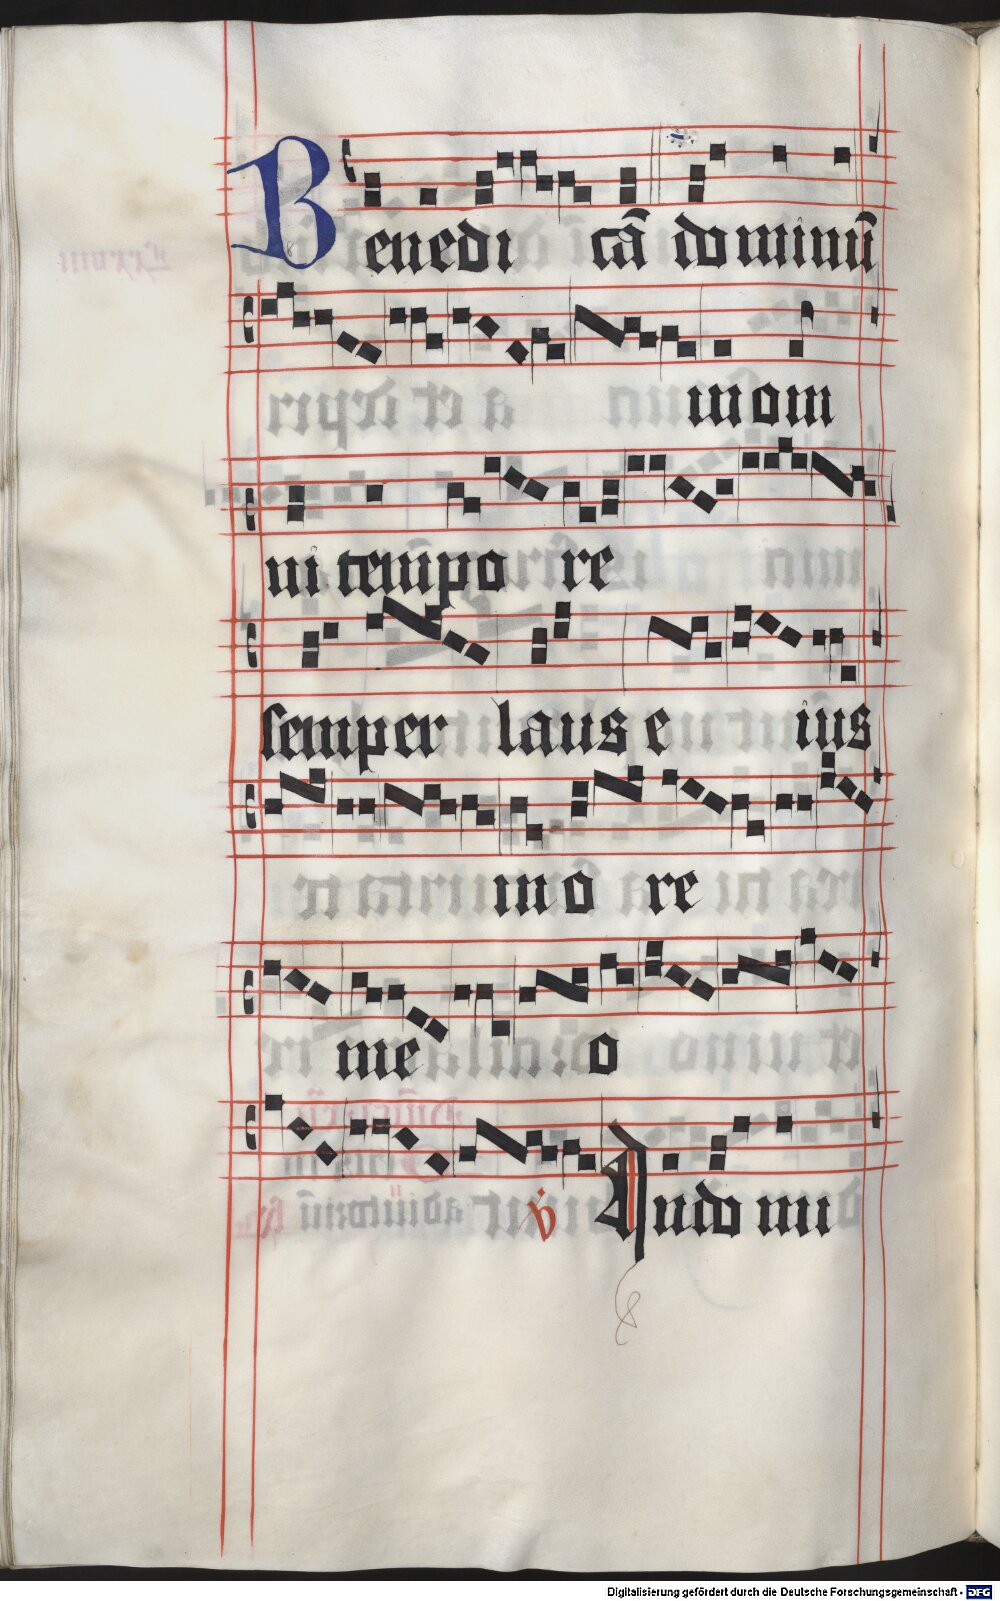 Benedi cā dominū
in om
ni tempo re
semper laus e ius
in o re
me o
v̇ In do mi
Digitalisierung gefördert durch die Deutsche Forschungsgemeinschaft - DFG